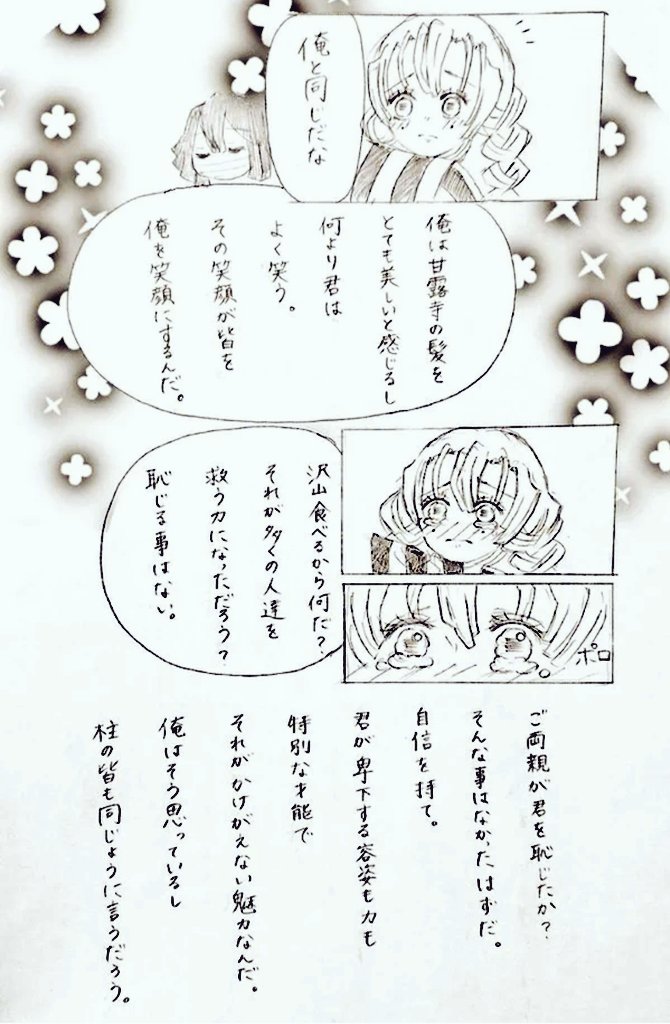 俺と同じだな
俺は甘露寺の髪を
とても美しいと感じるし
何より君は
よく笑う。
その笑顔が皆を
俺を笑顔にするんだ。
沢山食べるから何だ?
それが多くの人達を
救う力になっただろう?
恥じる事はない。
ポロ
ご両親が君を恥じたか?
そんな事はなかったはずだ。
自信を持て。
君が卑下する容姿も力も
特別な才能で
それがかけがえない魅力なんだ。
俺はそう思っているし
柱の皆も同じように言うだろう。